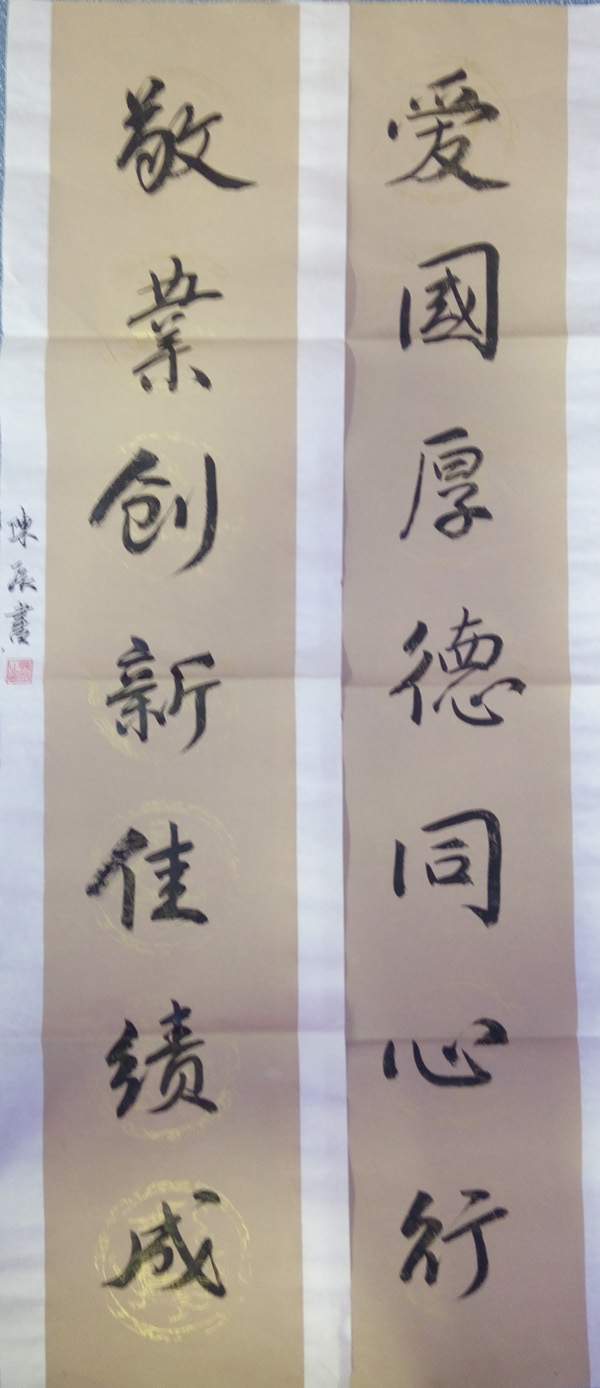 爱國厚德同心行
敬業创新佳绩成
陳辰書